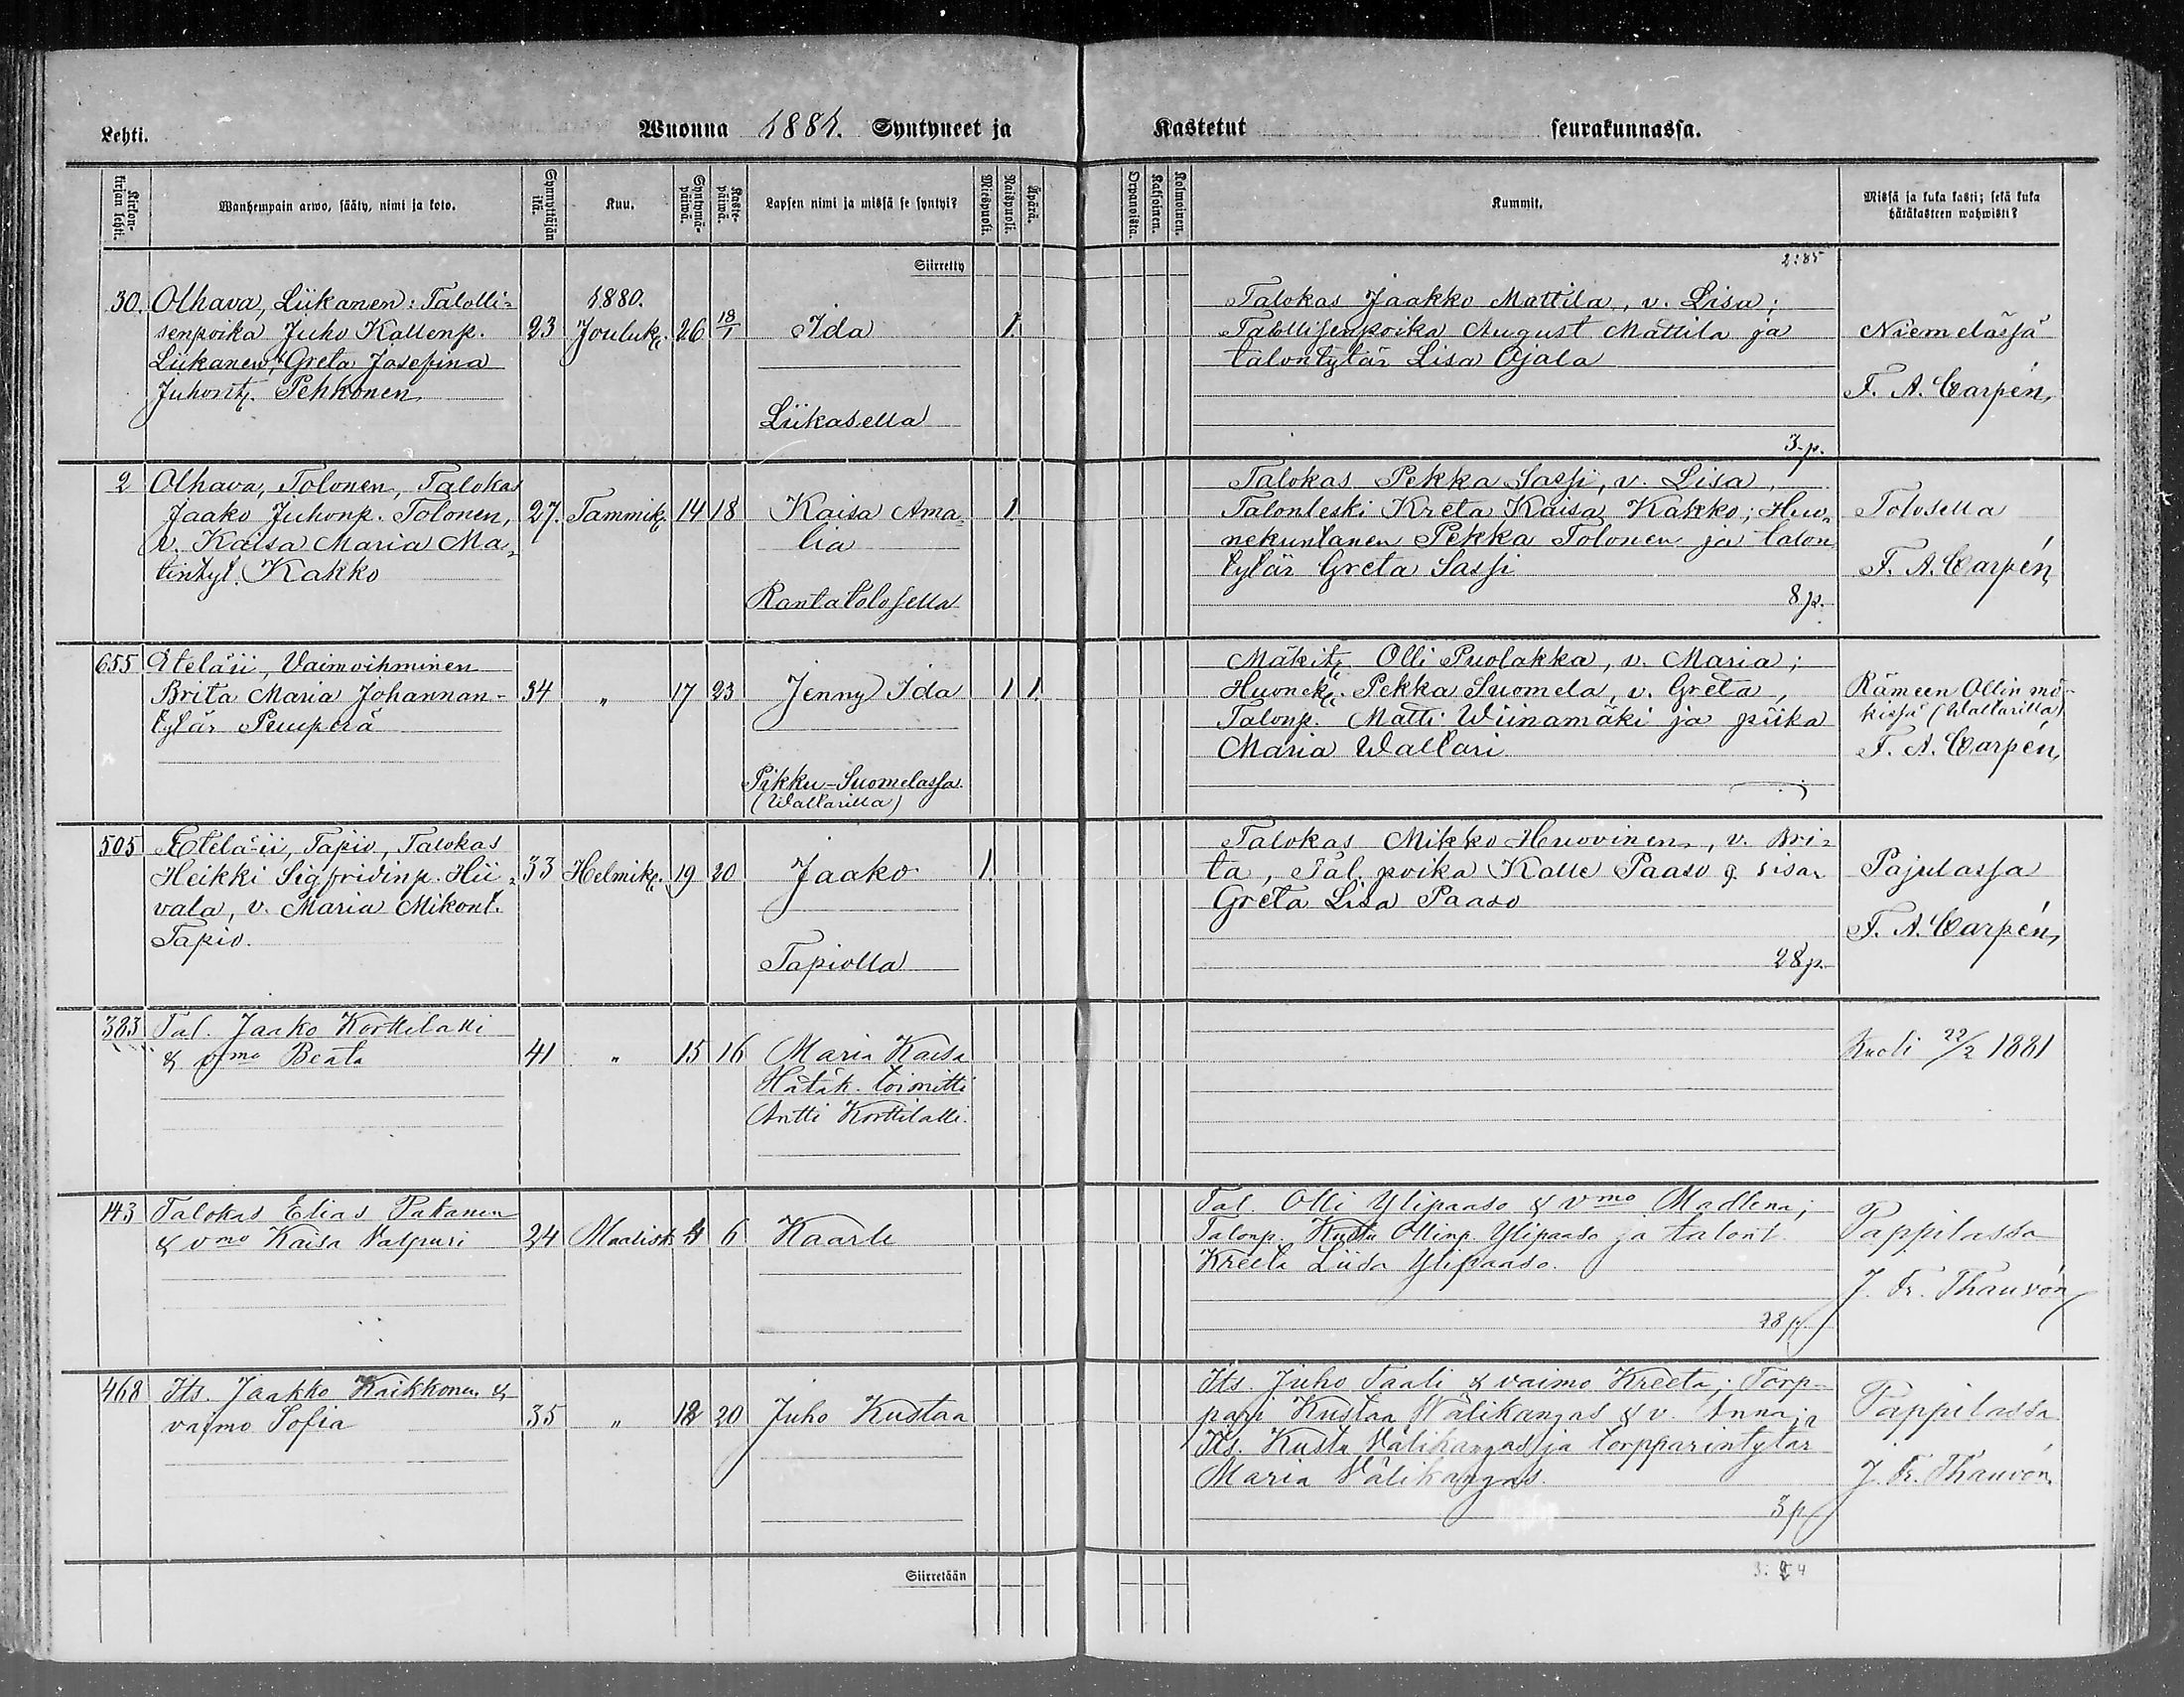 Lehti.
Wuonna 1881. Syntyneet ja
Kastetut seurakunnassa.
Kirkon-kirjan lehti.
Wanhempain arwo, sääty, nimi ja koto.
Synnyttäjän ikä.
Kuu.
Syntymä-päiwä.
Kaste-päiwä.
Lapsen nimi ja missä se syntyi?
Miespuoli.
Naispuoli.
Äpärä.
Orpanoista.
Kaksoinen.
Kolmoinen.
Kummit.
Missä ja kuka kasti; sekä kuka
hätäkasteen wahwisti?
Siirretty
2:85
30. Olhava, Liikanen: Talolli-
senpoika Juho Kallenp.
Liikanen, Greta Josefina
Juhont. Pehkonen
23
1880.
Jouluk. 26 18/1
Ida
Liikasella
1.
Talokas Jaakko Mattila, v. Lisa;
Talollisenpoika August Mattila ja
talontytär Lisa Ojala
3 p.
Niemelässä
F. A. Carpén,
2 Olhava, Tolonen, Talokas
Jaako Juhonp. Tolonen,
v. Kaisa Maria Ma-
tintyt. Kakko
27. Tammik. 14 18
Kaisa Ama-
lia
Rantatolosella
1
Talokas Pekka Sassi, v. Lisa,
Talonleski Kreta Kaisa Kakko; Huo-
nekuntanen Pekka Tolonen ja talon
tytär Greta Sassi
8 p.
Tolosella
F. A. Carpén,
655 Eteläii, Vaimoihminen
Brita Maria Johannan-
tytär Penuperä
34 " 17 23
Jenny Ida
Pikku-Suomelassa
(Wallarilla)
1 1.
Mäkit. Olli Puolakka, v. Maria;
Huonek. Pekka Suomela, v. Greta,
Talonp. Matti Wiinamäki ja piika
Maria Wallari
Rämeen Ollin mö-
kissä (Wallarilla)
F. A. Carpén,
505 Eteläii, Tapio, Talokas
Heikki Sigfridinp. Hii-
vala, v. Maria Mikont.
Tapio.
33 Helmik. 19 20
Jaako
Tapiolla
1.
Talokas Mikko Huovinen, v. Bri-
ta, Tal. poika Kalle Paaso j. sisar
Greta Lisa Paaso
28 p.
Pajulassa
F. A. Carpén,
383 Tal. Jaako Korttilalli
& vmo Beata
41 " 15 16
Maria Kaisa
Hätäk. toimitti
Antti Korttilalli.
Kuoli 22/2 1881
143 Talokas Elias Pakanen
& vmo Kaisa Valpuri
24 Maalisk. 4 6
Kaarle
Tal. Olli Ylipaaso & vmo Madlena;
Talonp. Kustu Ollinp. Ylipaaso ja talont.
Kreeta Liisa Ylipaaso.
28 p
Pappilassa
J. Fr. Thauvón
468 Its. Jaakko Kaikkonen &
vaimo Sofia
35 " 18 20
Juho Kustaa
Its. Juho Taali & vaimo Kreeta; Torp-
pari Kustaa Wälikangas & v. Anna ja
Its. Kustu Välikangas ja torpparintytär
Maria Välikangas.
3 p
Pappilassa
J. Fr. Thauvón.
Siirretään